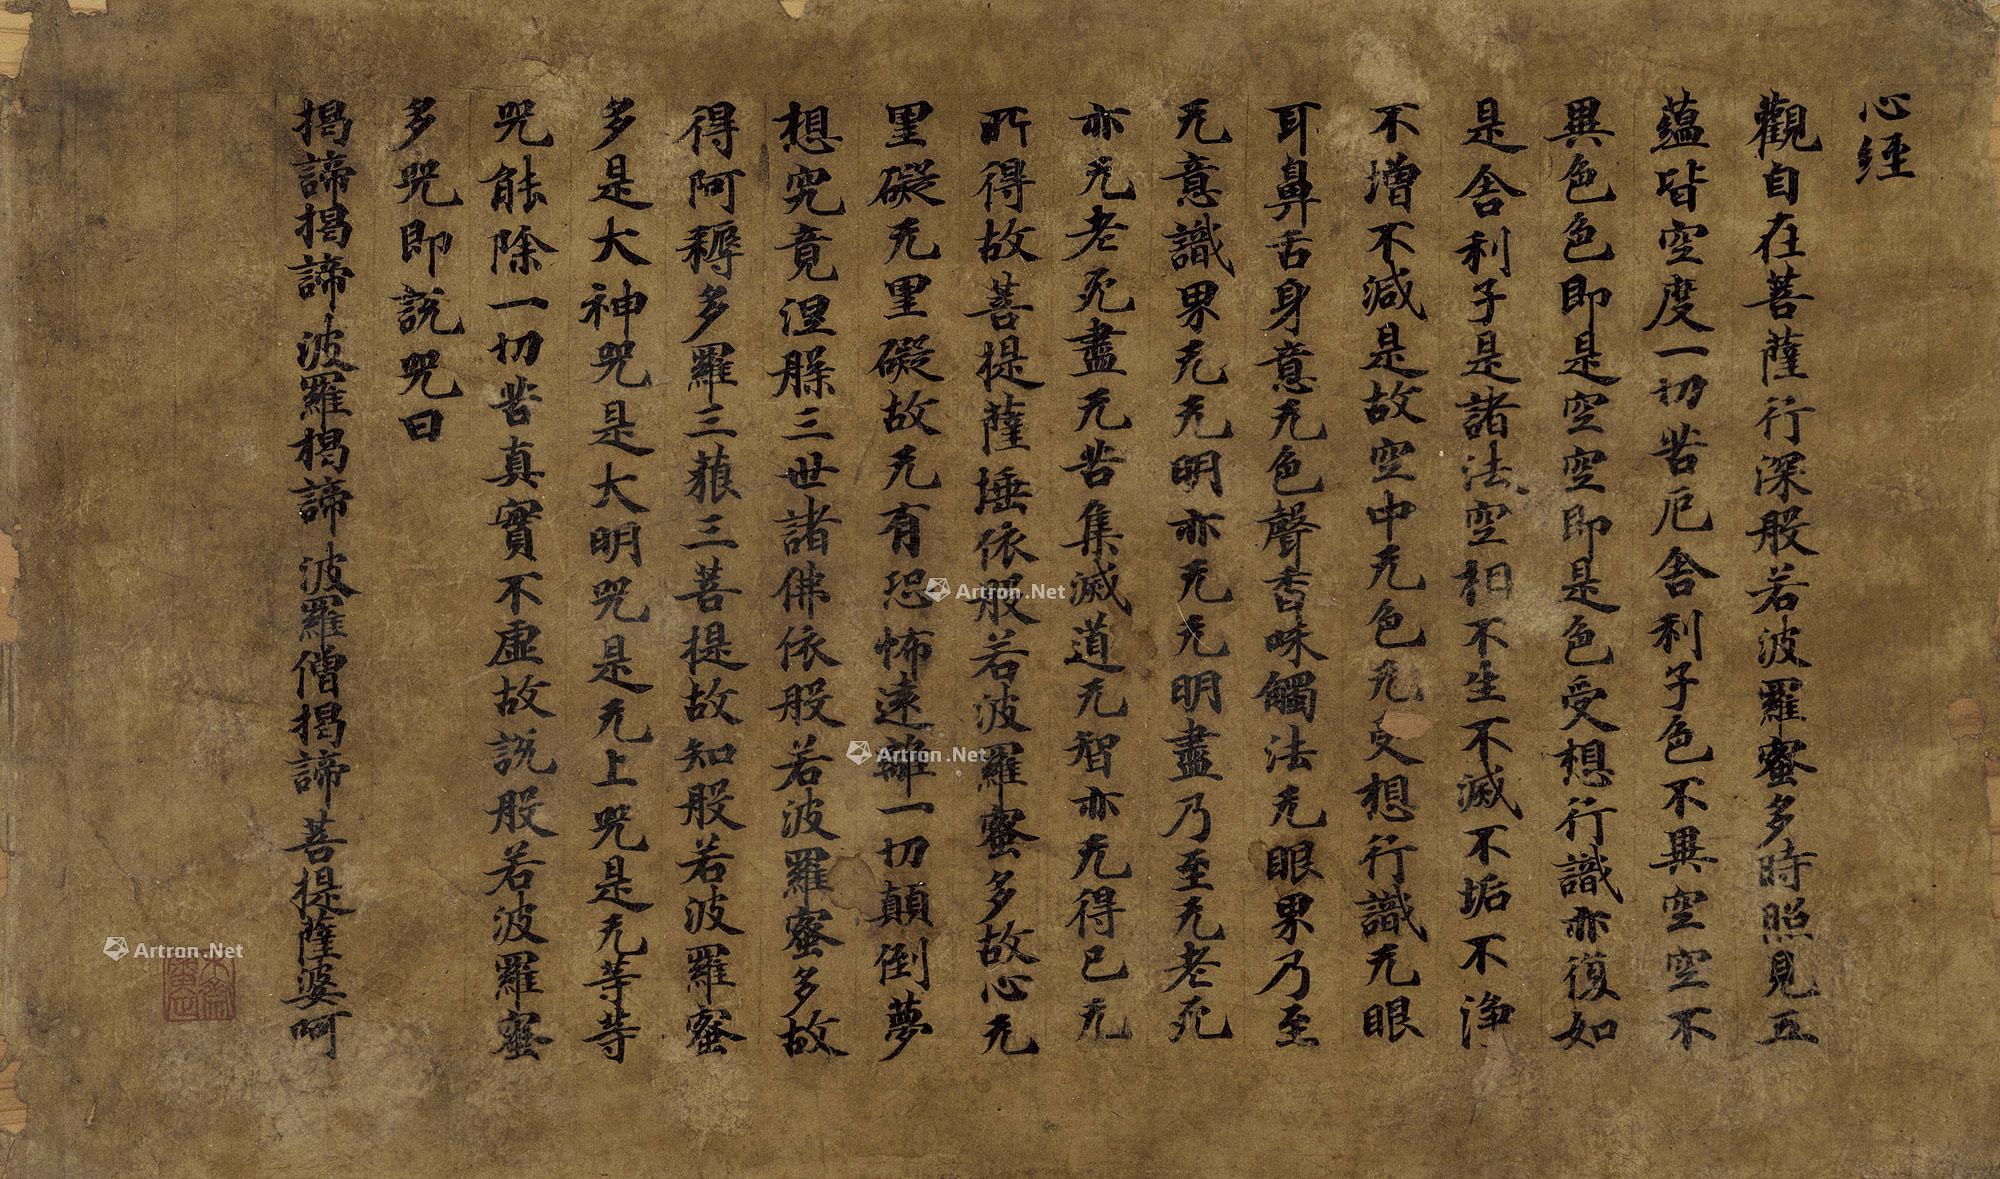 心経
觀自在菩薩行深般若波羅蜜多時照見五
蘊皆空度一切苦厄舍利子色不異空空不
異色色即是空空即是色受想行識亦復如
是舍利子是諸法空相不生不滅不垢不淨
不增不減是故空中无色无受想行識无眼
耳鼻舌身意无色聲香味觸法无眼界乃至
无意識界无无明亦无无明盡乃至无老死
亦无老死盡无苦集滅道无智亦无得已无
所得故菩提薩埵依般若波羅蜜多故心无
罣礙无罣礙故无有恐怖遠離一切顛倒夢
想究竟涅槃三世諸佛依般若波羅蜜多故
得阿耨多羅三藐三菩提故知般若波羅蜜
多是大神咒是大明咒是无上咒是无等等
咒能除一切苦真實不虛故說般若波羅蜜
多咒即說咒曰
揭諦揭諦波羅揭諦波羅僧揭諦菩提薩婆呵
Artron.Net
Artron.Net
Artron.Net